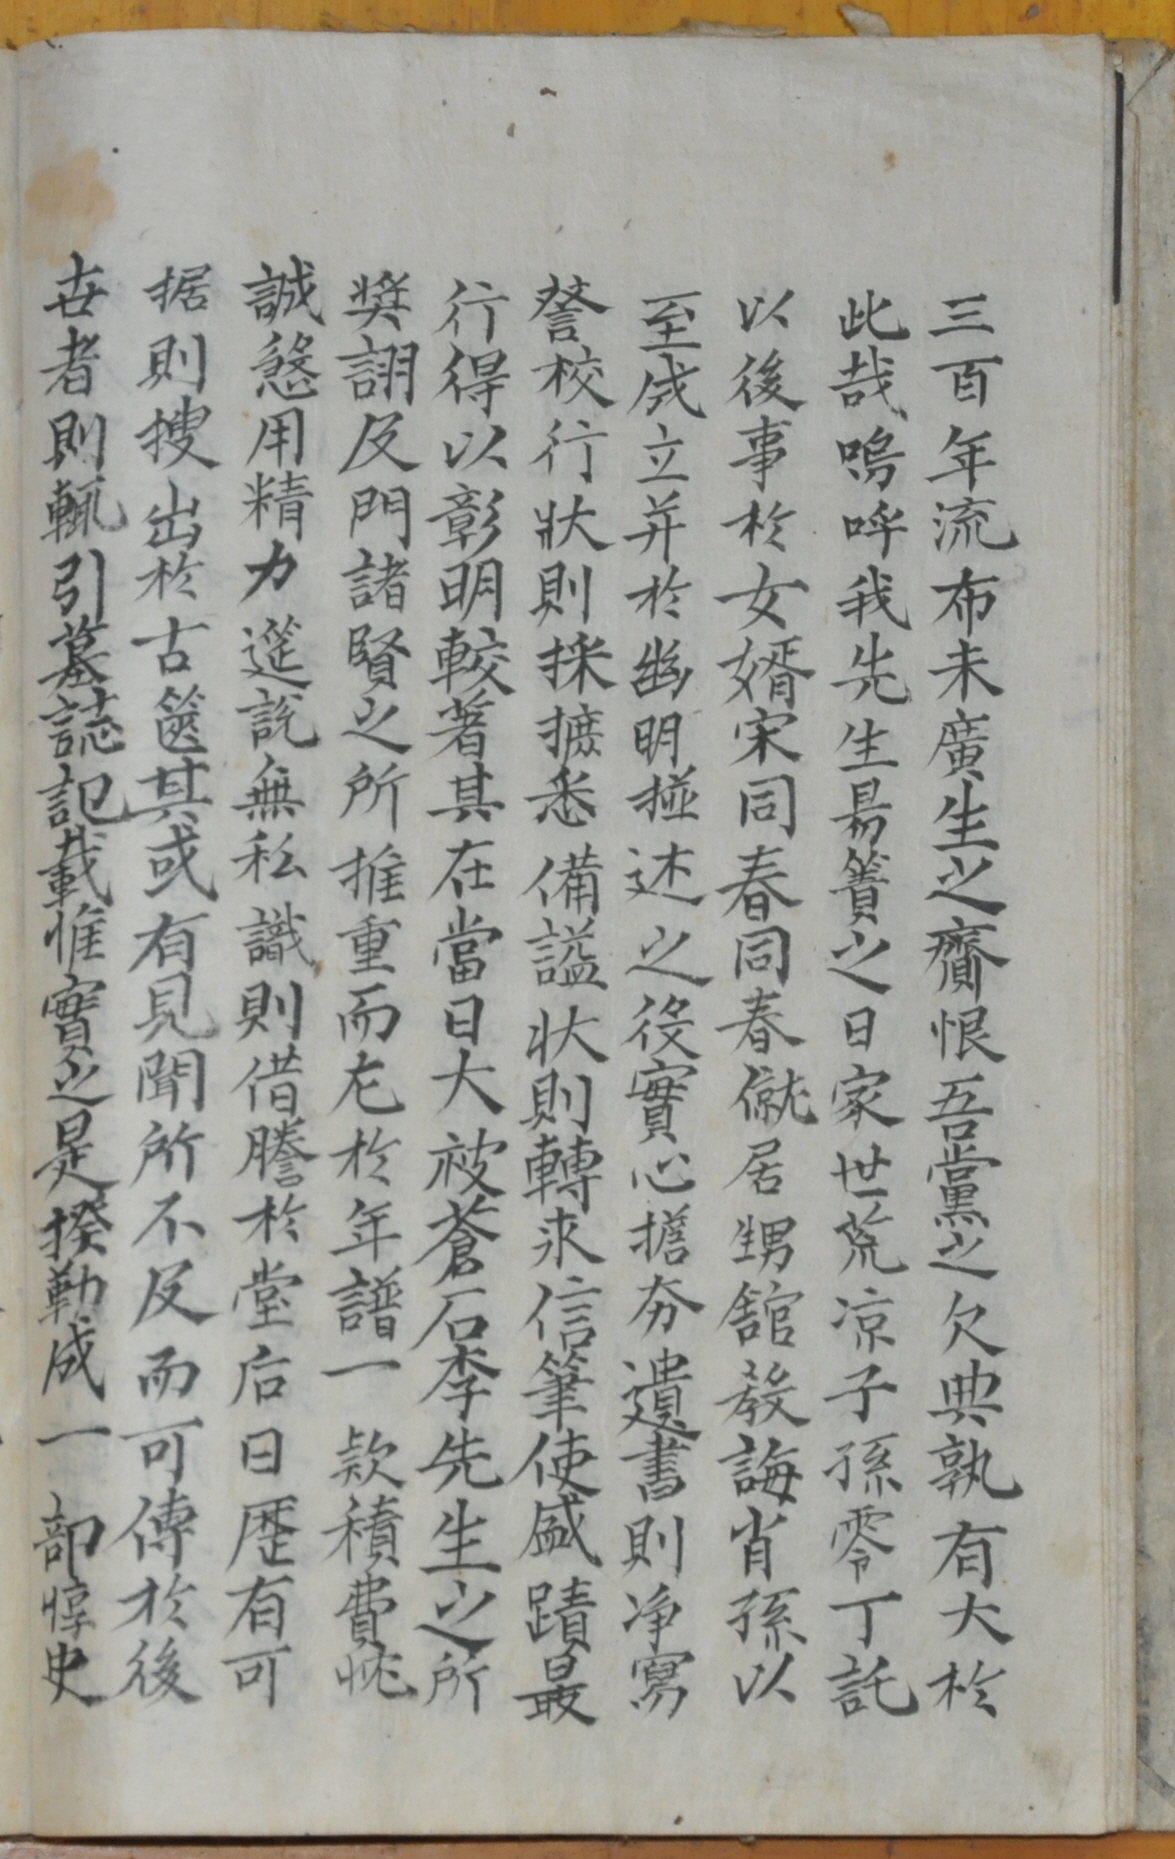 三百年流布未廣生之齎恨吾黨之欠典孰有大於
此哉嗚呼我先生易簀之日家世荒凉子孫零丁託
以後事於女婿宋同春同春僦居甥舘教誨肖孫以
至成立并於幽明摭述之役實心擔夯遺書則净寫
詧校行狀則採摭悉備謚狀則轉求信筆使盛蹟最
行得以彰明較著其在當日大被蒼石李先生之所
奬詡及門諸賢之所推重而尤於年譜一欵積費忱
誠慾用精力遊說無私識則借謄於堂后日歷有可
据則搜出於古篋其或有見聞所不反而可傳於後
世者則輒引墓誌記載惟實之是揆勒成一部惇史